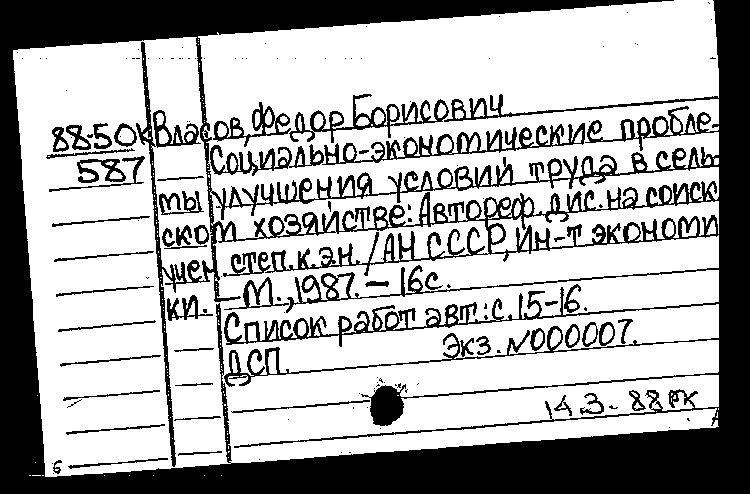 88-50к Власов, Федор Борисович
587 Социально-экономические пробле-
мы улучшения условий труда в сель
ском хозяйстве: Автореф. дис. на соиск
учен. степ. к.э.н. / АН СССР, Ин-т экономи
ки. – М., 1987. – 16с.
Список работ авт.: с. 15-16.
ДСП. Экз. N000007.
14.3-88
6